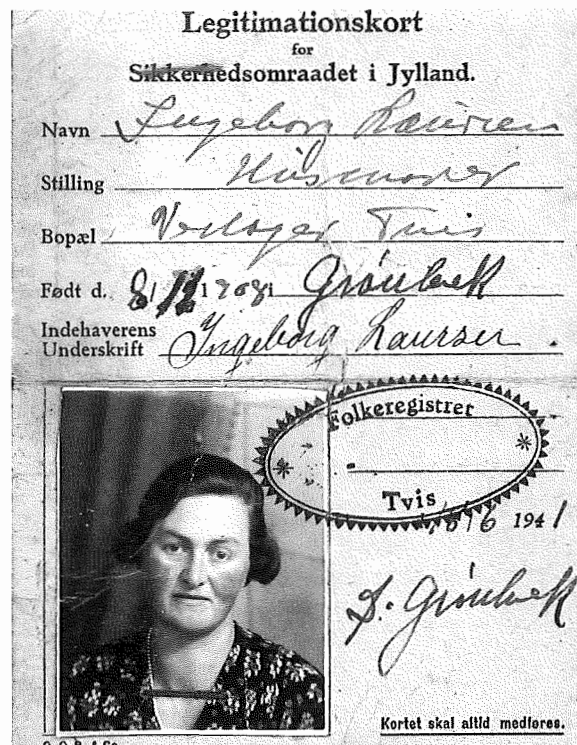 Legitimationskort
for
Sikkerhedsomraadet i Jylland.
Navn Ingeborg Laursen
Stilling Husmoder
Bopæl Tvis
Født d. 8/ 1908 i Grönbæk
Indehaverens
Underskrift Ingeborg Laursen .
Folkeregistret
Tvis
6 1941
Grønbæk
Kortet skal altid medføres.